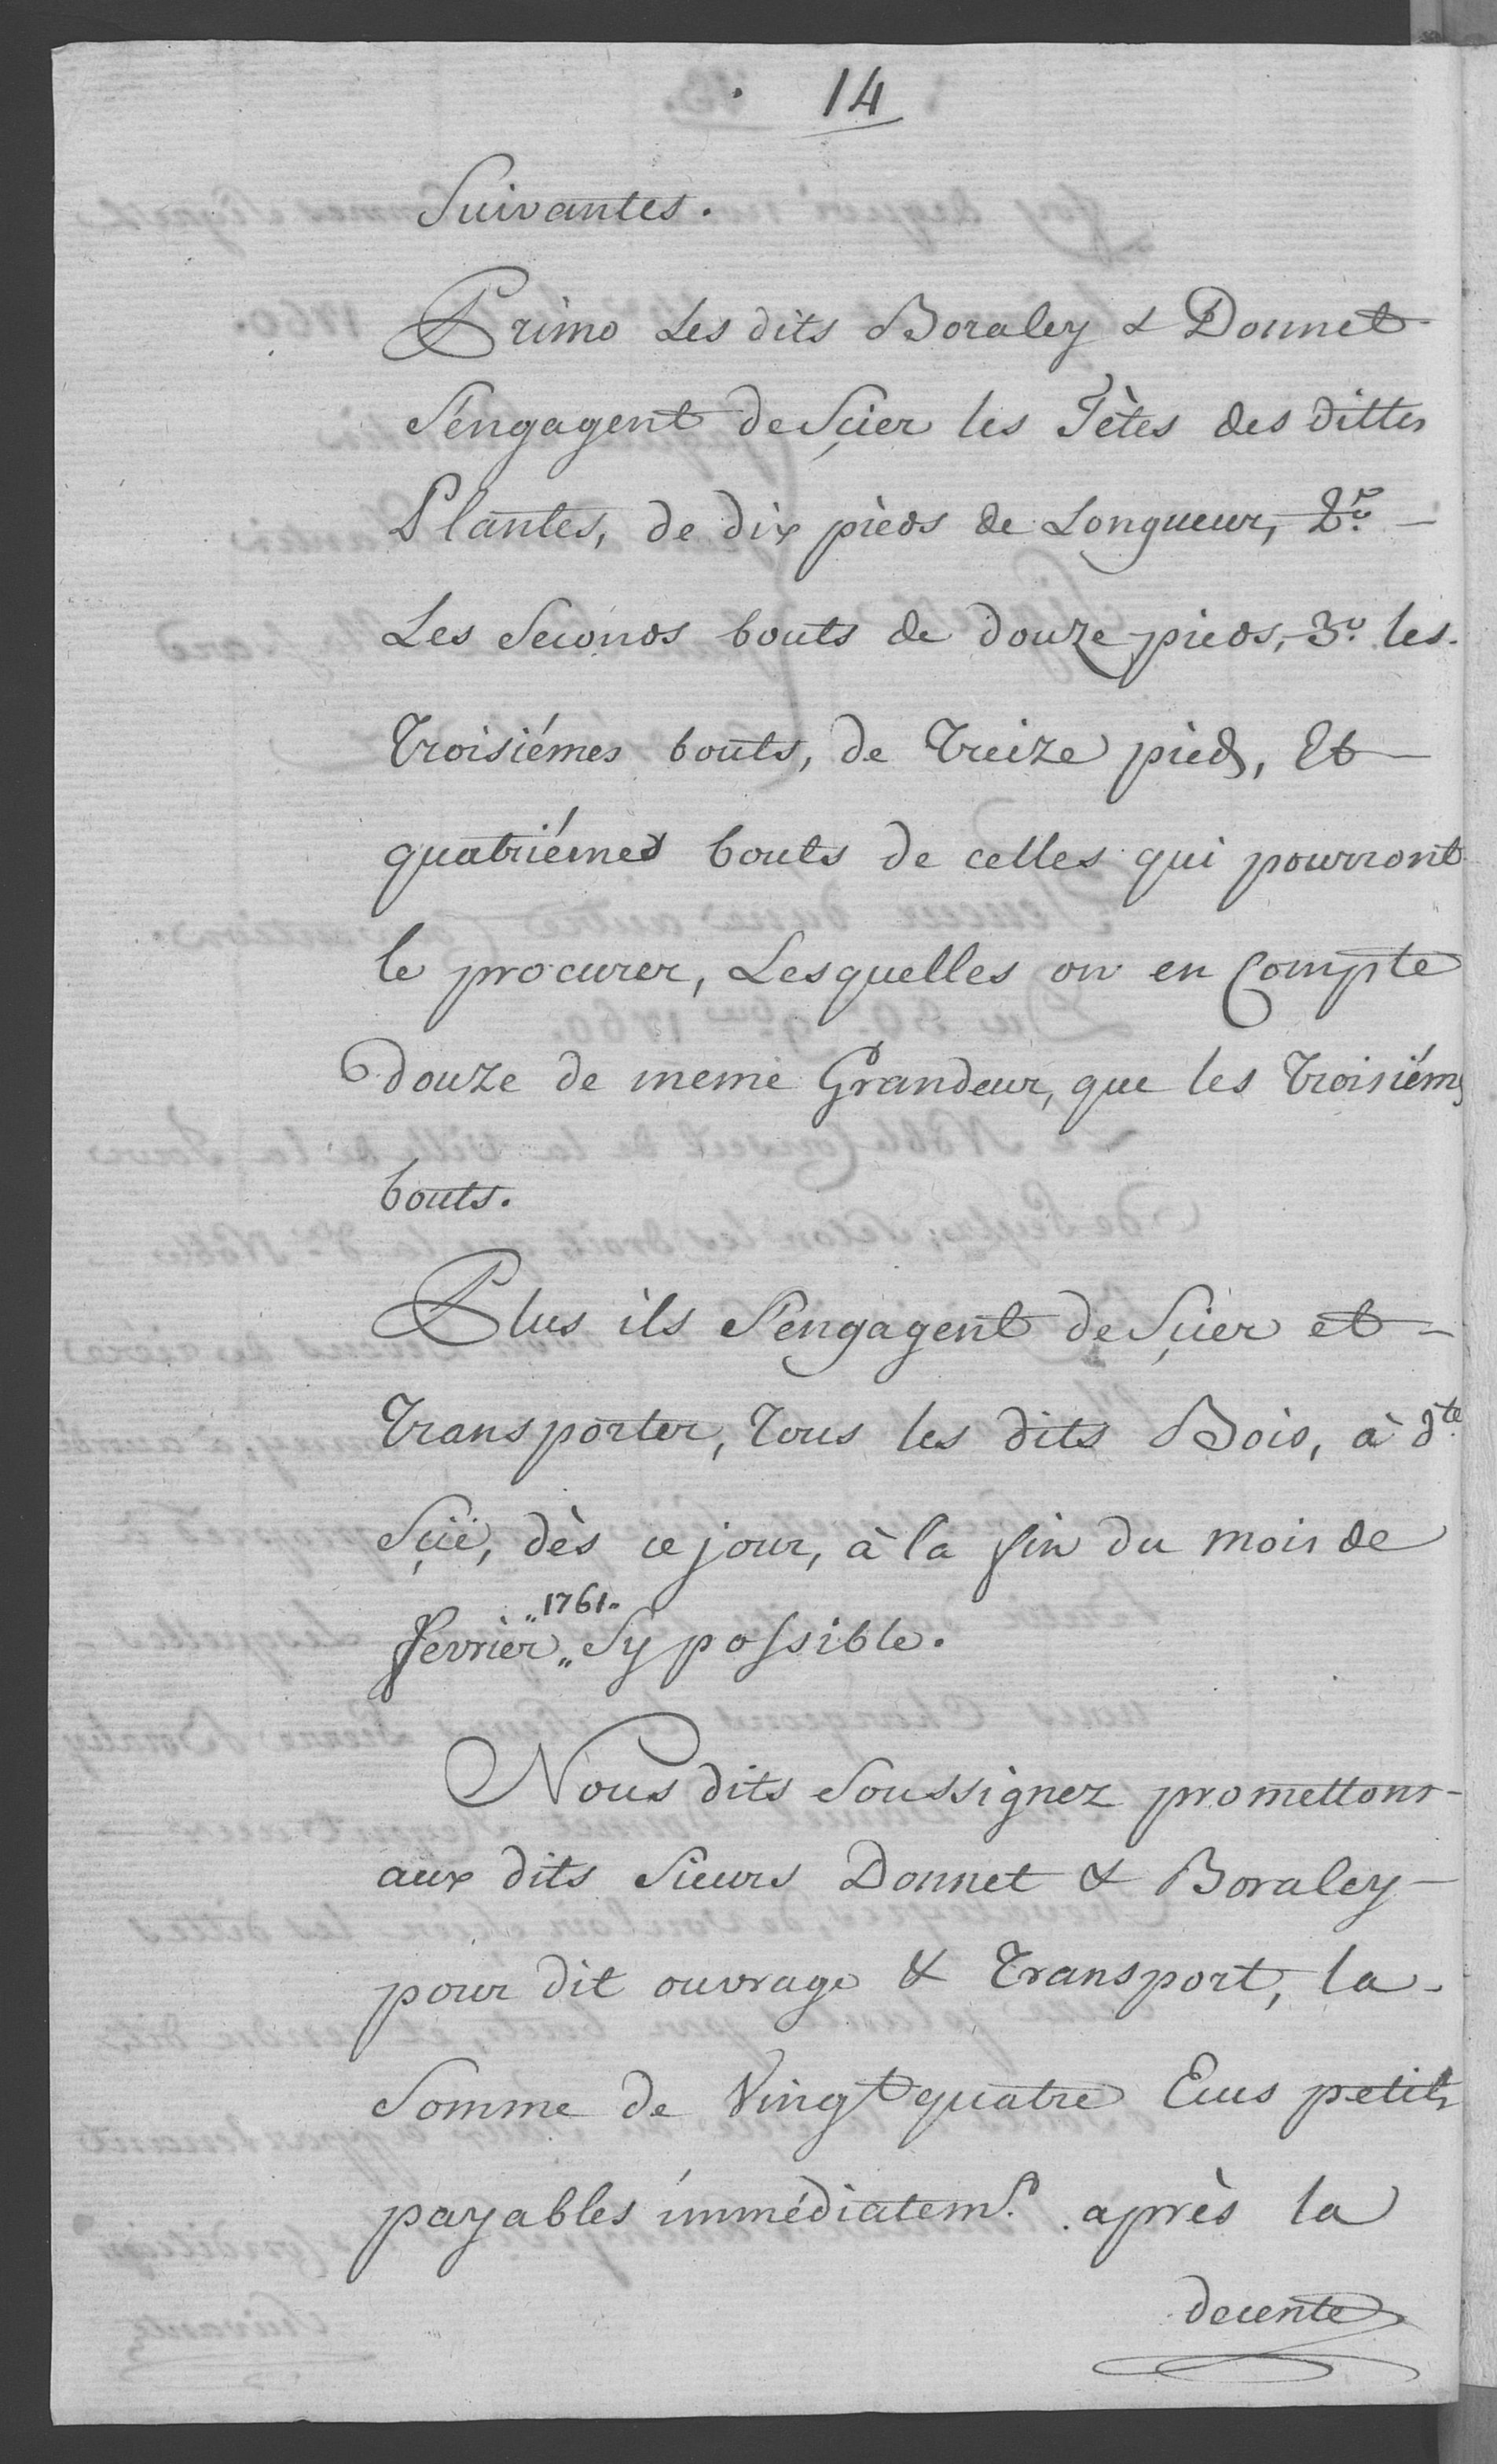 14
Suivantes.
Primo Les dits Boraley & Donnet
S'engagent de Sçier les Têtes des dittes
Plantes, de dix pieds de Longueur, 2.º
Les Seconds bouts de douze pieds, 3.º les
Troisiémes bouts, de Treize pieds, Et
quatriémes bouts de celles qui pourront
le procurer, Lesquelles on en Compte
douze de meme Grandeur, que les Troisiémes
bouts.
Plus ils S'engagent de Sçier et
Transporter, Tous les dits Bois, à d.te
Sçië, dès ce jour, à la fin du mois de
„1761„
fevrier „ Sy possible.
Nous dits Soussignez promettons
aux dits Sieurs Donnet & Boraley
pour dit ouvrage & Transport, la
Somme de Vingt quatre Ecus petits
payables immédiatem.t après la
decente